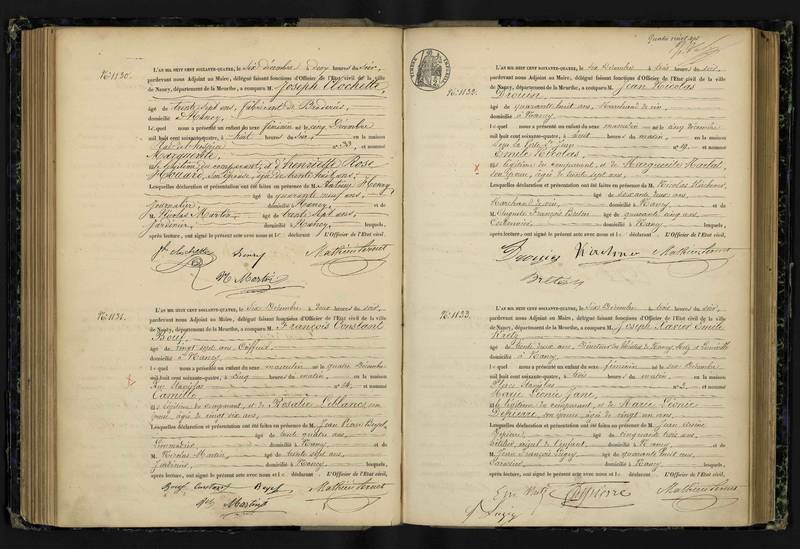 N°: 1130.
L'AN MIL HUIT CENT SOIXANTE-QUATRE, le Six Décembre à Deux heures du Soir,
pardevant nous Adjoint au Maire, délégué faisant fonctions d'Officier de l'Etat civil de la ville
de Nancy, département de la Meurthe, a comparu M. Joseph Clochette
âgé de trente sept ans, fabricant de Broderies,
domicilié à Nancy,
lequel nous a présenté un enfant du sexe féminin né le cinq Décembre
mil huit cent soixante-quatre, à huit heures du Soir, en la maison
n° 33, et nommé
Marguerite,
fille légitime du comparant, et d'Henriette Rose
son épouse, âgée de trente huit ans;
Lesquelles déclaration et présentation ont été faites en présence de M. Henry,
âgé de quarante neuf ans,
Journalier, domicilié à Nancy, et de
M. Nicolas Martin, âgé de trente sept ans,
Jardinier, domicilié à Nancy, lesquels,
après lecture, ont signé le présent acte avec nous et le déclarant. L'Officier de l'Etat civil,
Henry
N Martin
N°: 1131.
L'AN MIL HUIT CENT SOIXANTE-QUATRE, le Six Décembre à Deux heures du Soir,
pardevant nous Adjoint au Maire, délégué faisant fonctions d'Officier de l'Etat civil de la ville
de Nancy, département de la Meurthe, a comparu M. François Constant
Bouf,
âgé de vingt sept ans, Coiffeur,
domicilié à Nancy
lequel nous a présenté un enfant du sexe masculin né le quatre Décembre
mil huit cent soixante-quatre, à cinq heures du matin, en la maison
Rue Stanislas n° et nommé
Camille,
fils légitime du comparant, et de Rosalie Leblanc son
épouse, âgée de vingt six ans;
Lesquelles déclaration et présentation ont été faites en présence de M. Jean
âgé de trente quatre ans,
domicilié à Nancy et de
M. Nicolas Martin, âgé de trente sept ans,
Jardinier, domicilié à Nancy, lesquels,
après lecture, ont signé le présent acte avec nous et le déclarant. L'Officier de l'Etat civil,
Bouf Constant
Martin
Quatre vingt
N°: 1132.
L'AN MIL HUIT CENT SOIXANTE-QUATRE, le Six Décembre à trois heures du soir,
pardevant nous Adjoint au Maire, délégué faisant fonctions d'Officier de l'Etat civil de la ville
de Nancy, département de la Meurthe, a comparu M. Jean Nicolas
Drouin,
âgé de quarante huit ans, Marchand de vin,
domicilié à Nancy
lequel nous a présenté un enfant du sexe masculin né le cinq Décembre
mil huit cent soixante-quatre, à huit heures du matin, en la maison
n° 19, et nommé
Emile Nicolas,
fils légitime du comparant, et de Marguerite
son épouse, âgée de trente sept ans,
Lesquelles déclaration et présentation ont été faites en présence de M. Nicolas
âgé de soixante deux ans,
Marchand de vin, domicilié à Nancy et de
M. Auguste François Breton âgé de quarante cinq ans,
domicilié à Nancy lesquels,
après lecture, ont signé le présent acte avec nous et le déclarant. L'Officier de l'Etat civil,
Drouin
Breton
N°: 1133.
L'AN MIL HUIT CENT SOIXANTE-QUATRE, le Six Décembre à trois heures du soir,
pardevant nous Adjoint au Maire, délégué faisant fonctions d'Officier de l'Etat civil de la ville
de Nancy, département de la Meurthe, a comparu M. Joseph Xavier Emile
âgé de trente deux ans, Directeur
domicilié à Nancy,
lequel nous a présenté un enfant du sexe féminin né le six Décembre
mil huit cent soixante-quatre, à trois heures du matin, en la maison
Place Stanislas n° 2, et nommé
Marie Léonie Jane,
fille légitime du comparant, et de Marie Léonie
son épouse, âgée de vingt un ans,
Lesquelles déclaration et présentation ont été faites en présence de M. Jean
âgé de cinquante trois ans,
domicilié à Nancy et de
M. Jean François âgé de quarante huit ans,
domicilié à Nancy lesquels,
après lecture, ont signé le présent acte avec nous et le déclarant. L'Officier de l'Etat civil,